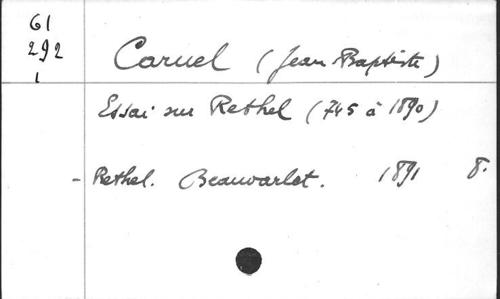 61
292
1
Caruel (Jean Baptiste)
Essai sur Rethel (745 à 1890)
- Rethel. Beauvarlet. 1891 8.